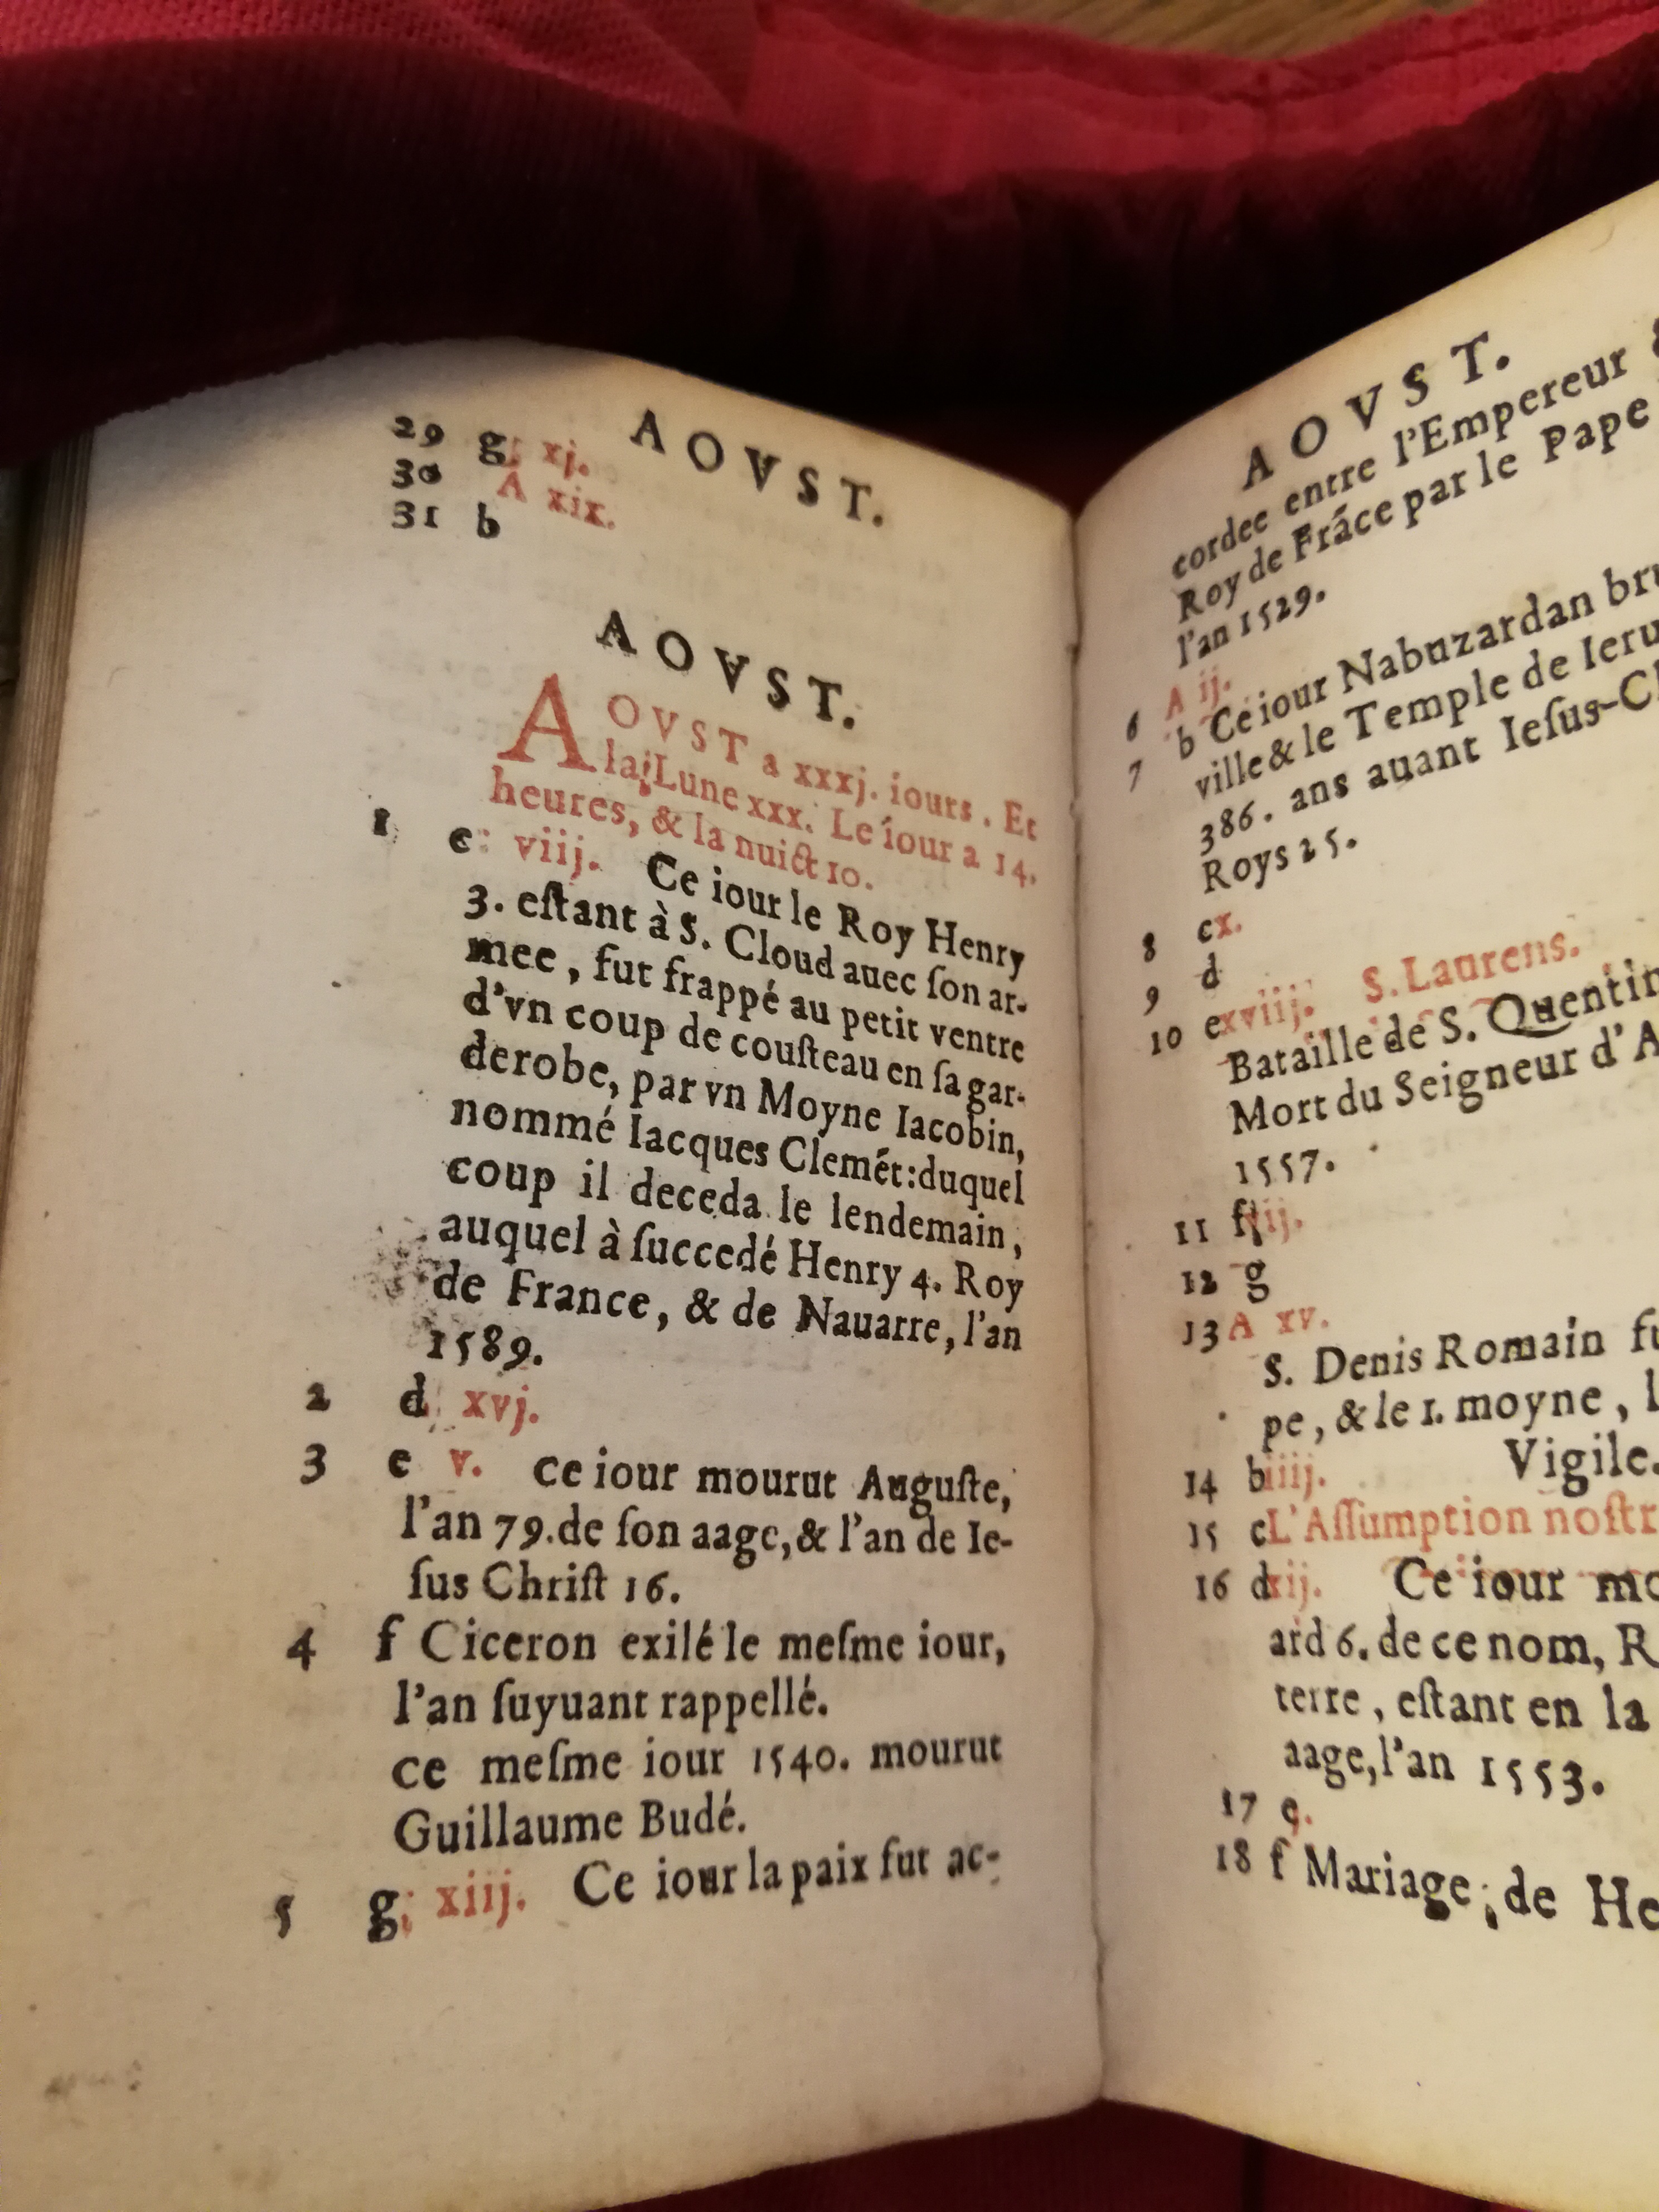 AOVST.
29 g xj.
30 A xix.
31 b
AOVST.
AOVST a xxxj. iours. Et
la Lune xxx. Le iour a 14.
heures, & la nuict 10.
1 c viij. Ce iour le Roy Henry
3. eſtant à S. Cloud auec ſon ar-
mee, fut frappé au petit ventre
d'vn coup de couſteau en ſa gar-
derobe, par vn Moyne Iacobin,
nommé Iacques Clemét: duquel
coup il deceda le lendemain,
auquel à ſuccedé Henry 4. Roy
de France, & de Nauarre, l'an
1589.
2 d xvj.
3 e v. Ce iour mourut Auguſte,
l'an 79. de ſon aage, & l'an de Ie-
ſus Chriſt 16.
4 f Ciceron exilé le meſme iour,
l'an ſuyuant rappellé.
ce meſme iour 1540. mourut
Guillaume Budé.
5 g xiij. Ce iour la paix fut ac-
AOVST.
cordee entre l'Empereur &
Roy de Fráce par le Pape
l'an 1529.
6 A ij.
7 b Ce iour Nabuzardan bru
ville & le Temple de Ieru
386. ans auant Ieſus-Ch
Roys 25.
8 c x.
9 d
10 e xviij. S. Laurens.
Bataille de S. Quentin
Mort du Seigneur d'A
1557.
11 f vij.
12 g
13 A xv.
S. Denis Romain fu
pe, & le 1. moyne, l
14 b iiij. Vigile.
15 c L'Aſſumption noſtr
16 d xij. Ce iour mo
ard 6. de ce nom, R
terre, eſtant en la
aage, l'an 1553.
17 e.
18 f Mariage de He